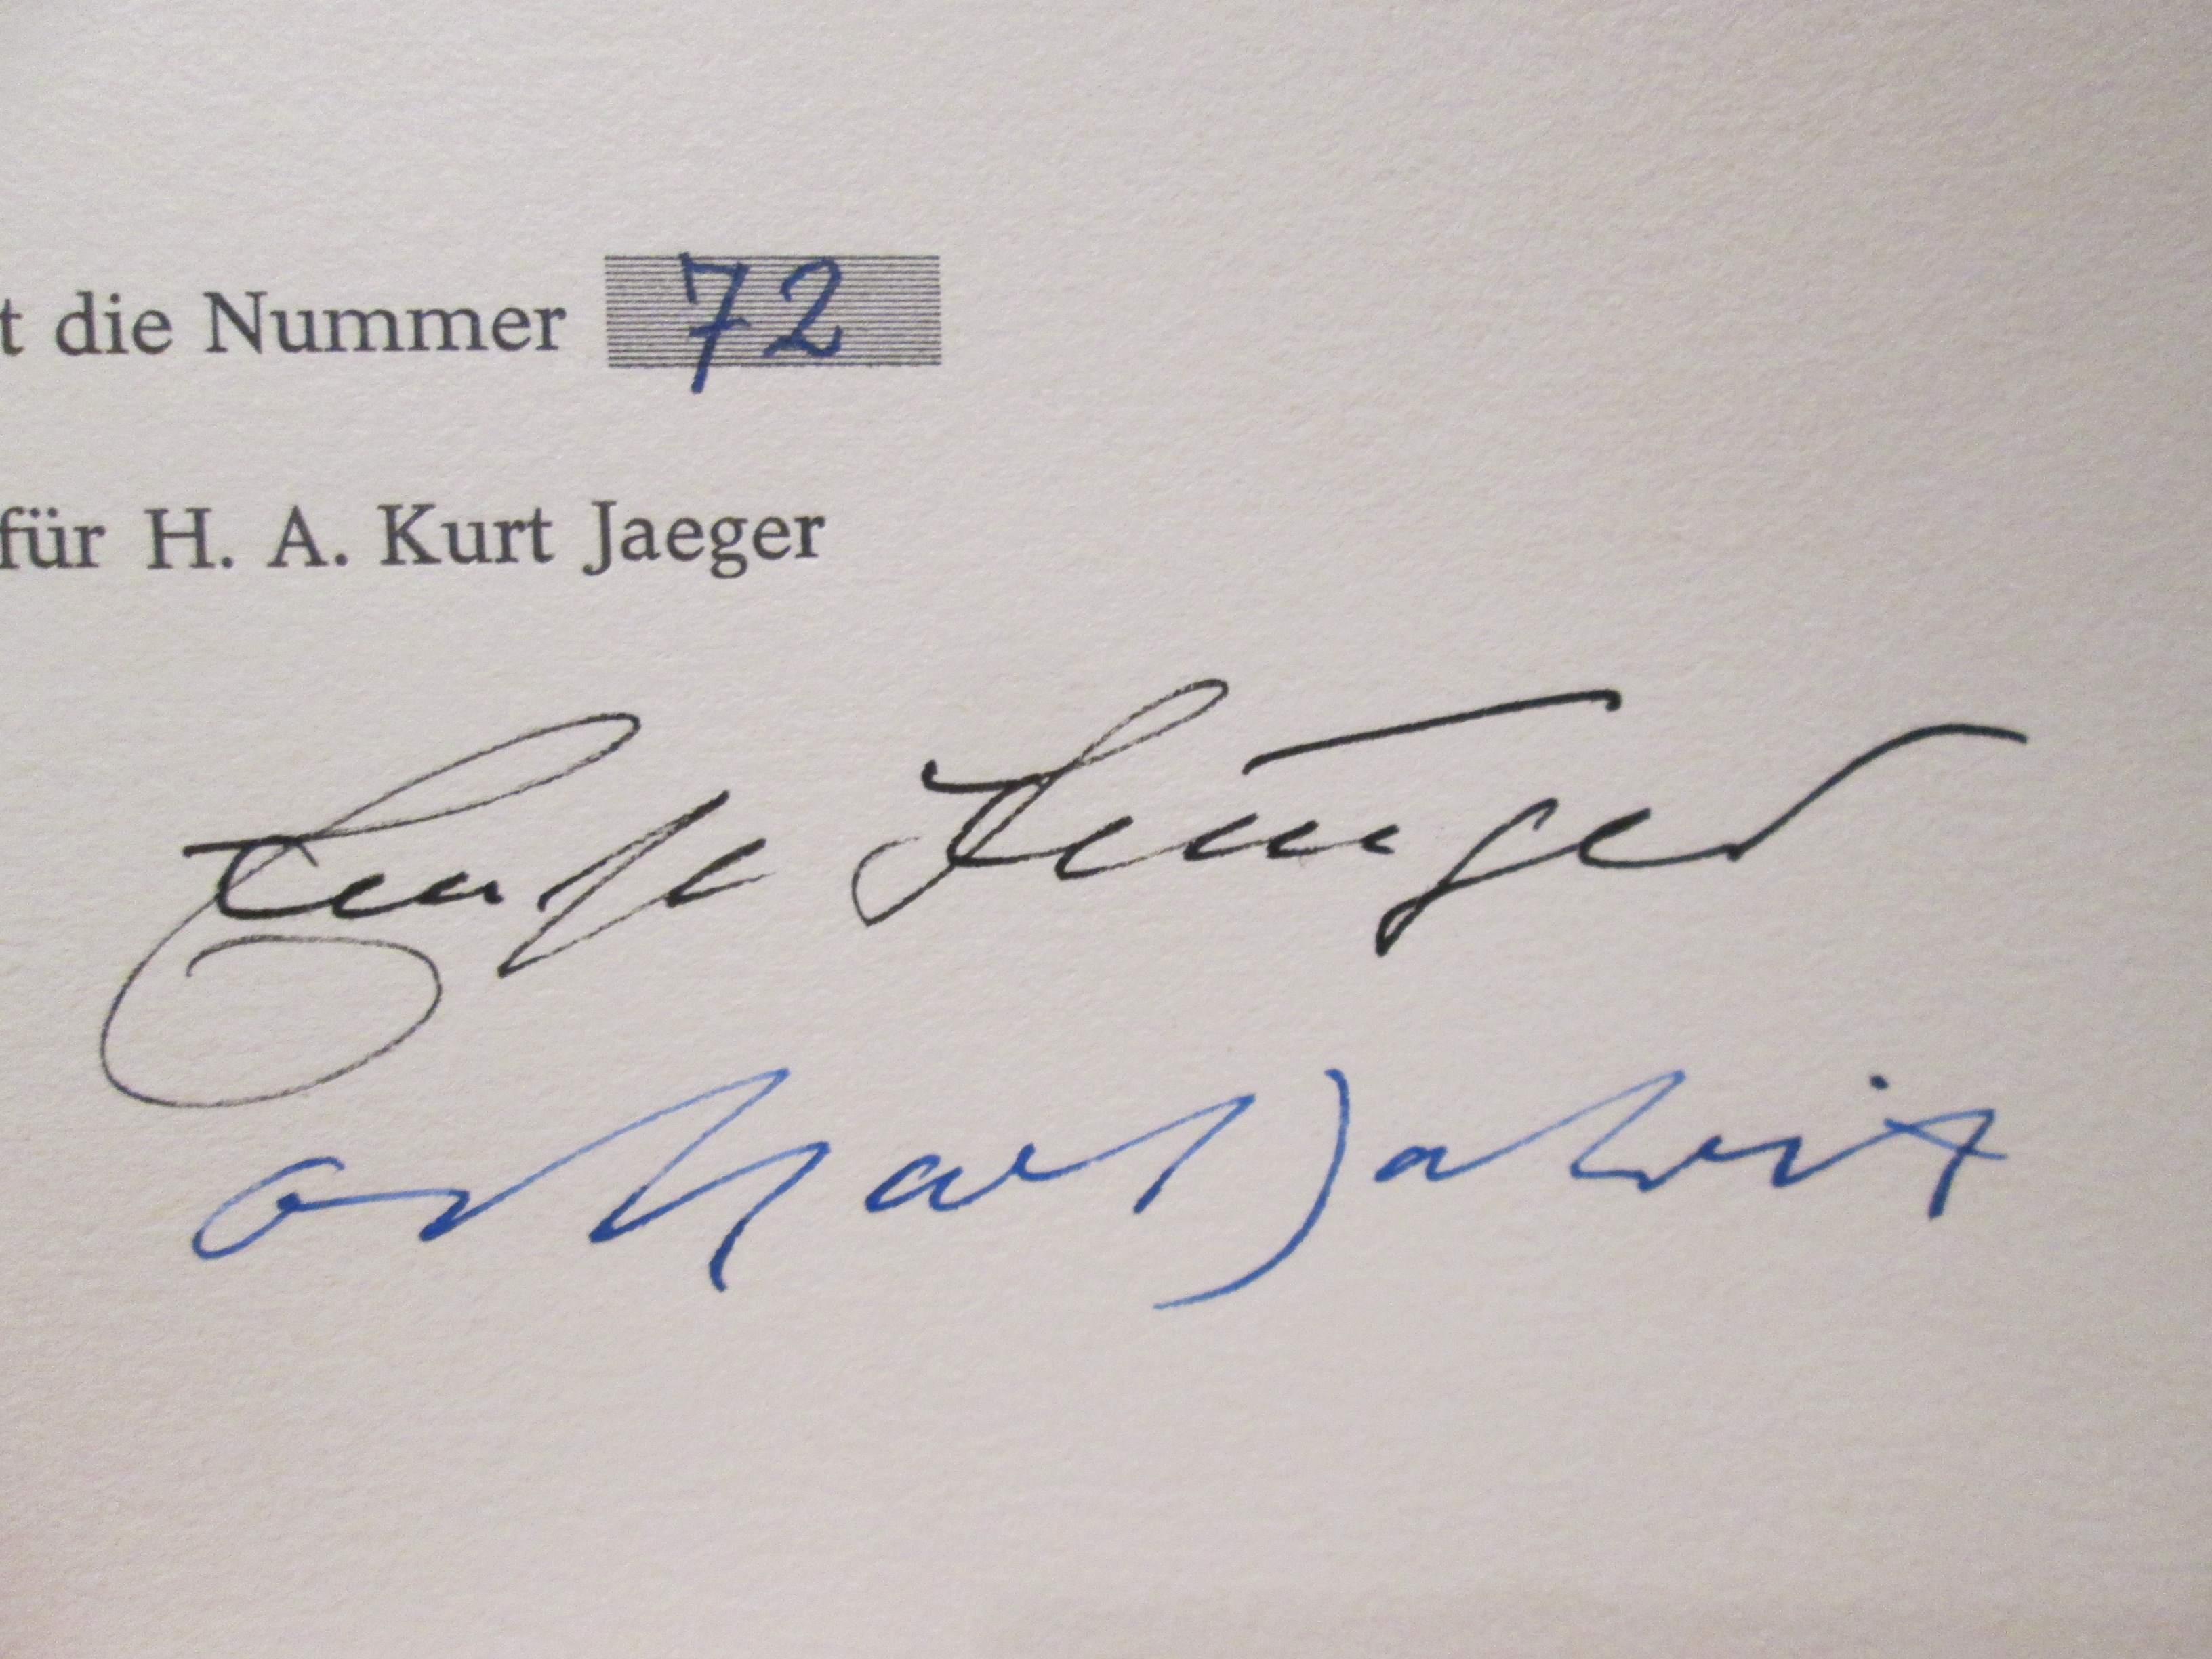 t die Nummer 72
für H. A. Kurt Jaeger
Ernst Jünger